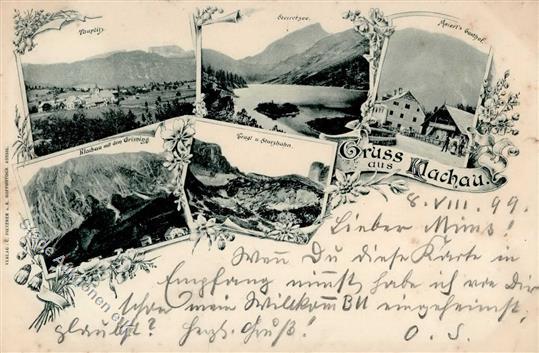 Tauplitz.
Steiretzsee.
Maierl's Gasthof.
Klachau mit dem Grimming.
Tragl u Sturzhahn.
Gruss
aus Klachau.
8. VIII. 99.
Lieber Mims!
Wenn Du diese Karte in
Empfang nimmst habe ich vor Dir
schon mein Willkomm Bll eingeheimst,
glaubst? Herzl. Gruß! O. S.